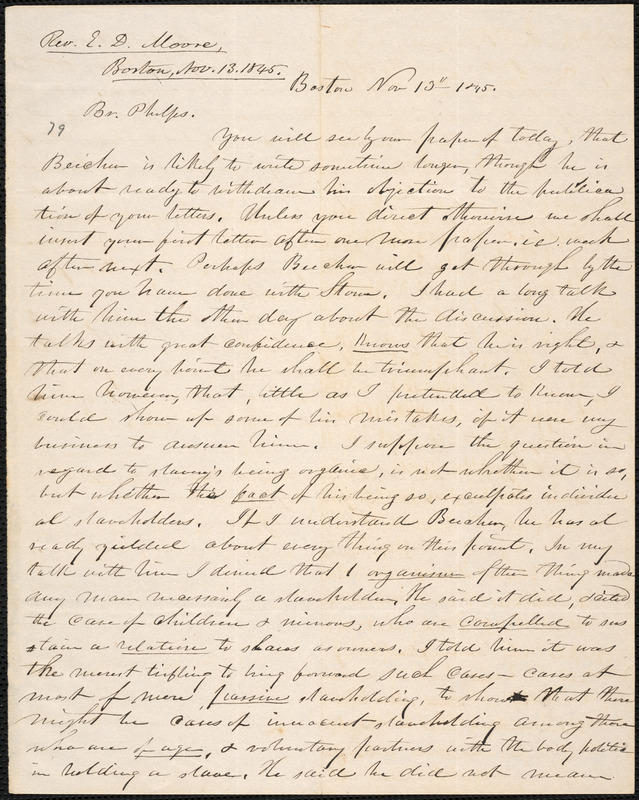 Rev. E. D. Moore,
Boston, Nov. 13. 1845.
Boston Nov 13" 1845.
Br. Phelps.
79
You will see by our paper of today, that
Beecher is likely to write sometime longer, though he is
about ready to withdraw his objection to the publica
tion of your letters. Unless you direct otherwise we shall
insert your first letter after one more paper, i.e. week
after next. Perhaps Beecher will get through by the
time you have done with Stowe. I had a long talk
with him the other day about the discussion. He
talks with great confidence, knows that he is right, &
that on every point he shall be triumphant. I told
him however, that, little as I pretended to know, I
could show up some of his mistakes, if it were my
business to answer him. I suppose the question in
regard to slavery's being organic, is not whether it is so,
but whether the fact of its being so, exculpates individu
al slaveholders. If I understand Beecher, he has al
ready yielded about every thing on this point. In my
talk with him I denied that organism of the thing made
any man necessarily a slaveholder. He said it did, & cited
the case of children & minors, who are compelled to sus
tain a relation to slaves as owners. I told him it was
the merest trifling to bring forward such cases - cases at
most of mere passive slaveholding, to show that there
might be cases of innocent slaveholding among those
who are of age, & voluntary partners with the body politic
in holding a slave. He said he did not mean